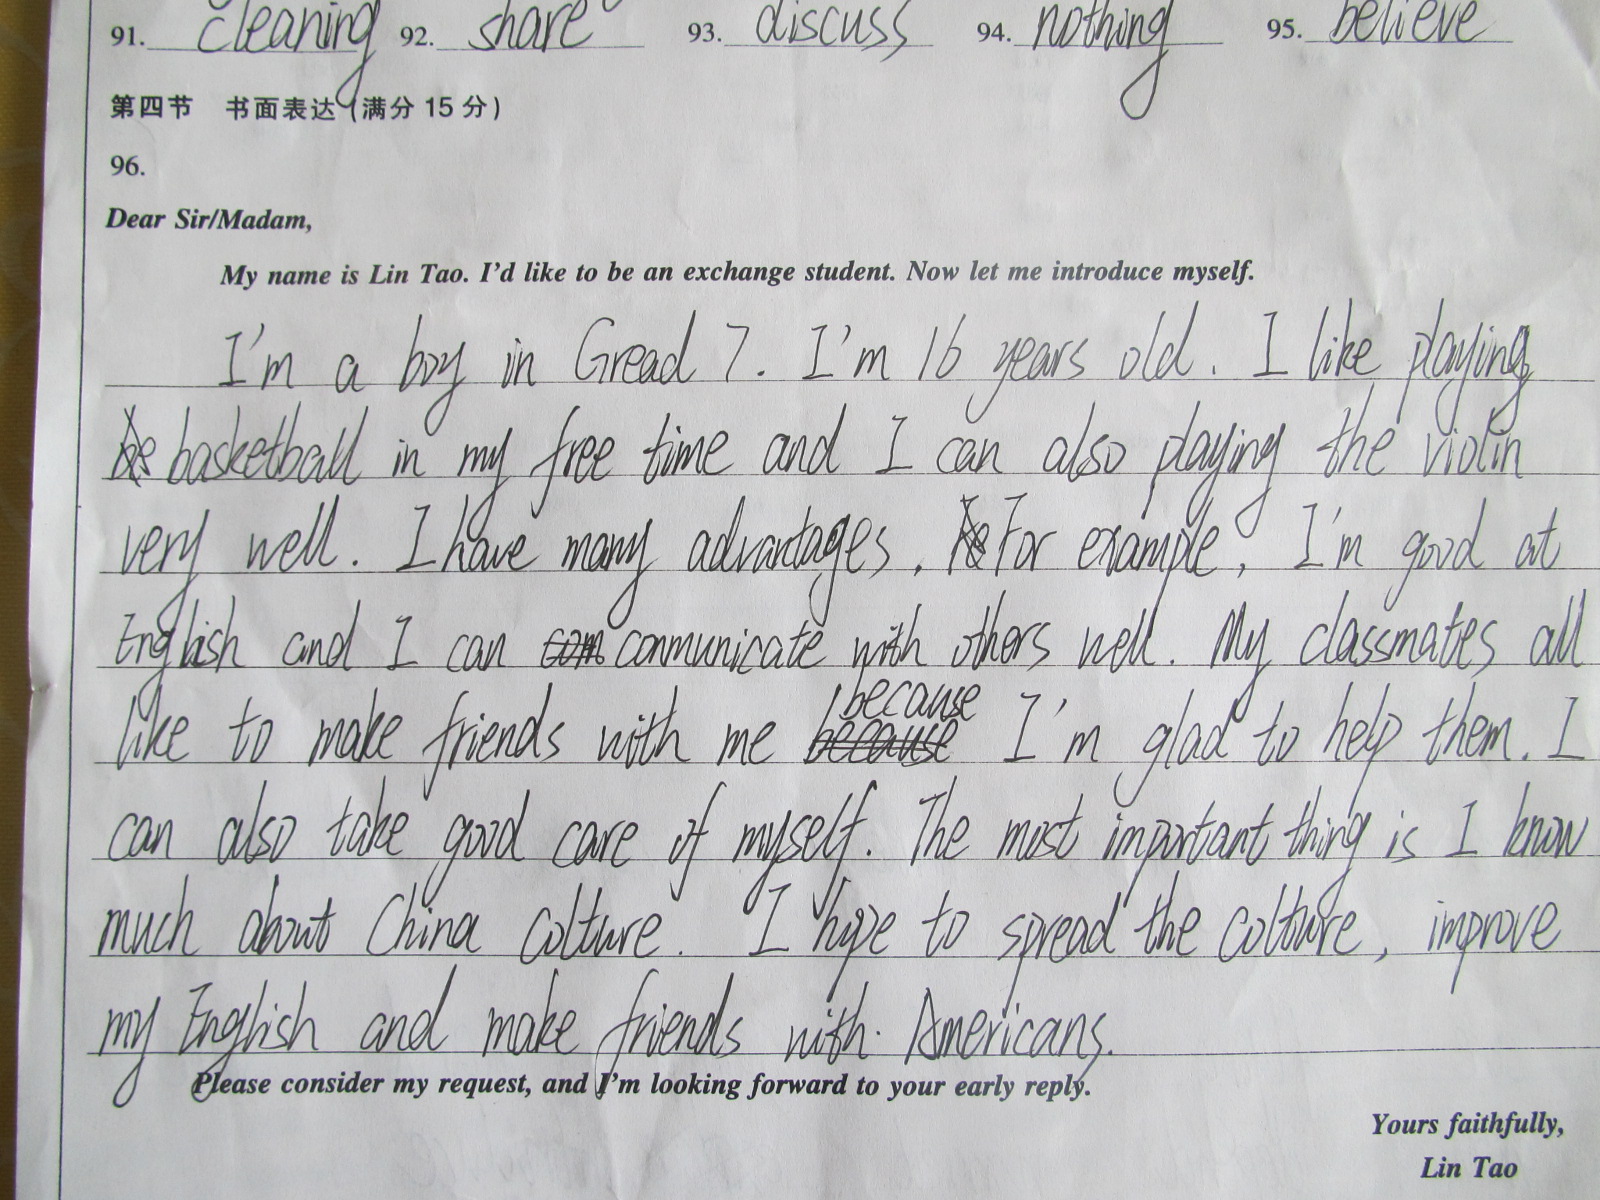 91. cleaning 92. share 93. discuss 94. nothing 95. believe
第四节 书面表达(满分 15 分)
96.
Dear Sir/Madam,
My name is Lin Tao. I'd like to be an exchange student. Now let me introduce myself.
I'm a boy in Gread 7. I'm 16 years old. I like playing
basketball in my free time and I can also playing the violin
very well. I have many advantages. For example, I'm good at
English and I can communicate with others well. My classmates all
like to make friends with me because I'm glad to help them. I
can also take good care of myself. The most important thing is I know
much about China colture. I hope to spread the colture, improve
my English and make friends with Americans.
Please consider my request, and I'm looking forward to your early reply.
Yours faithfully,
Lin Tao